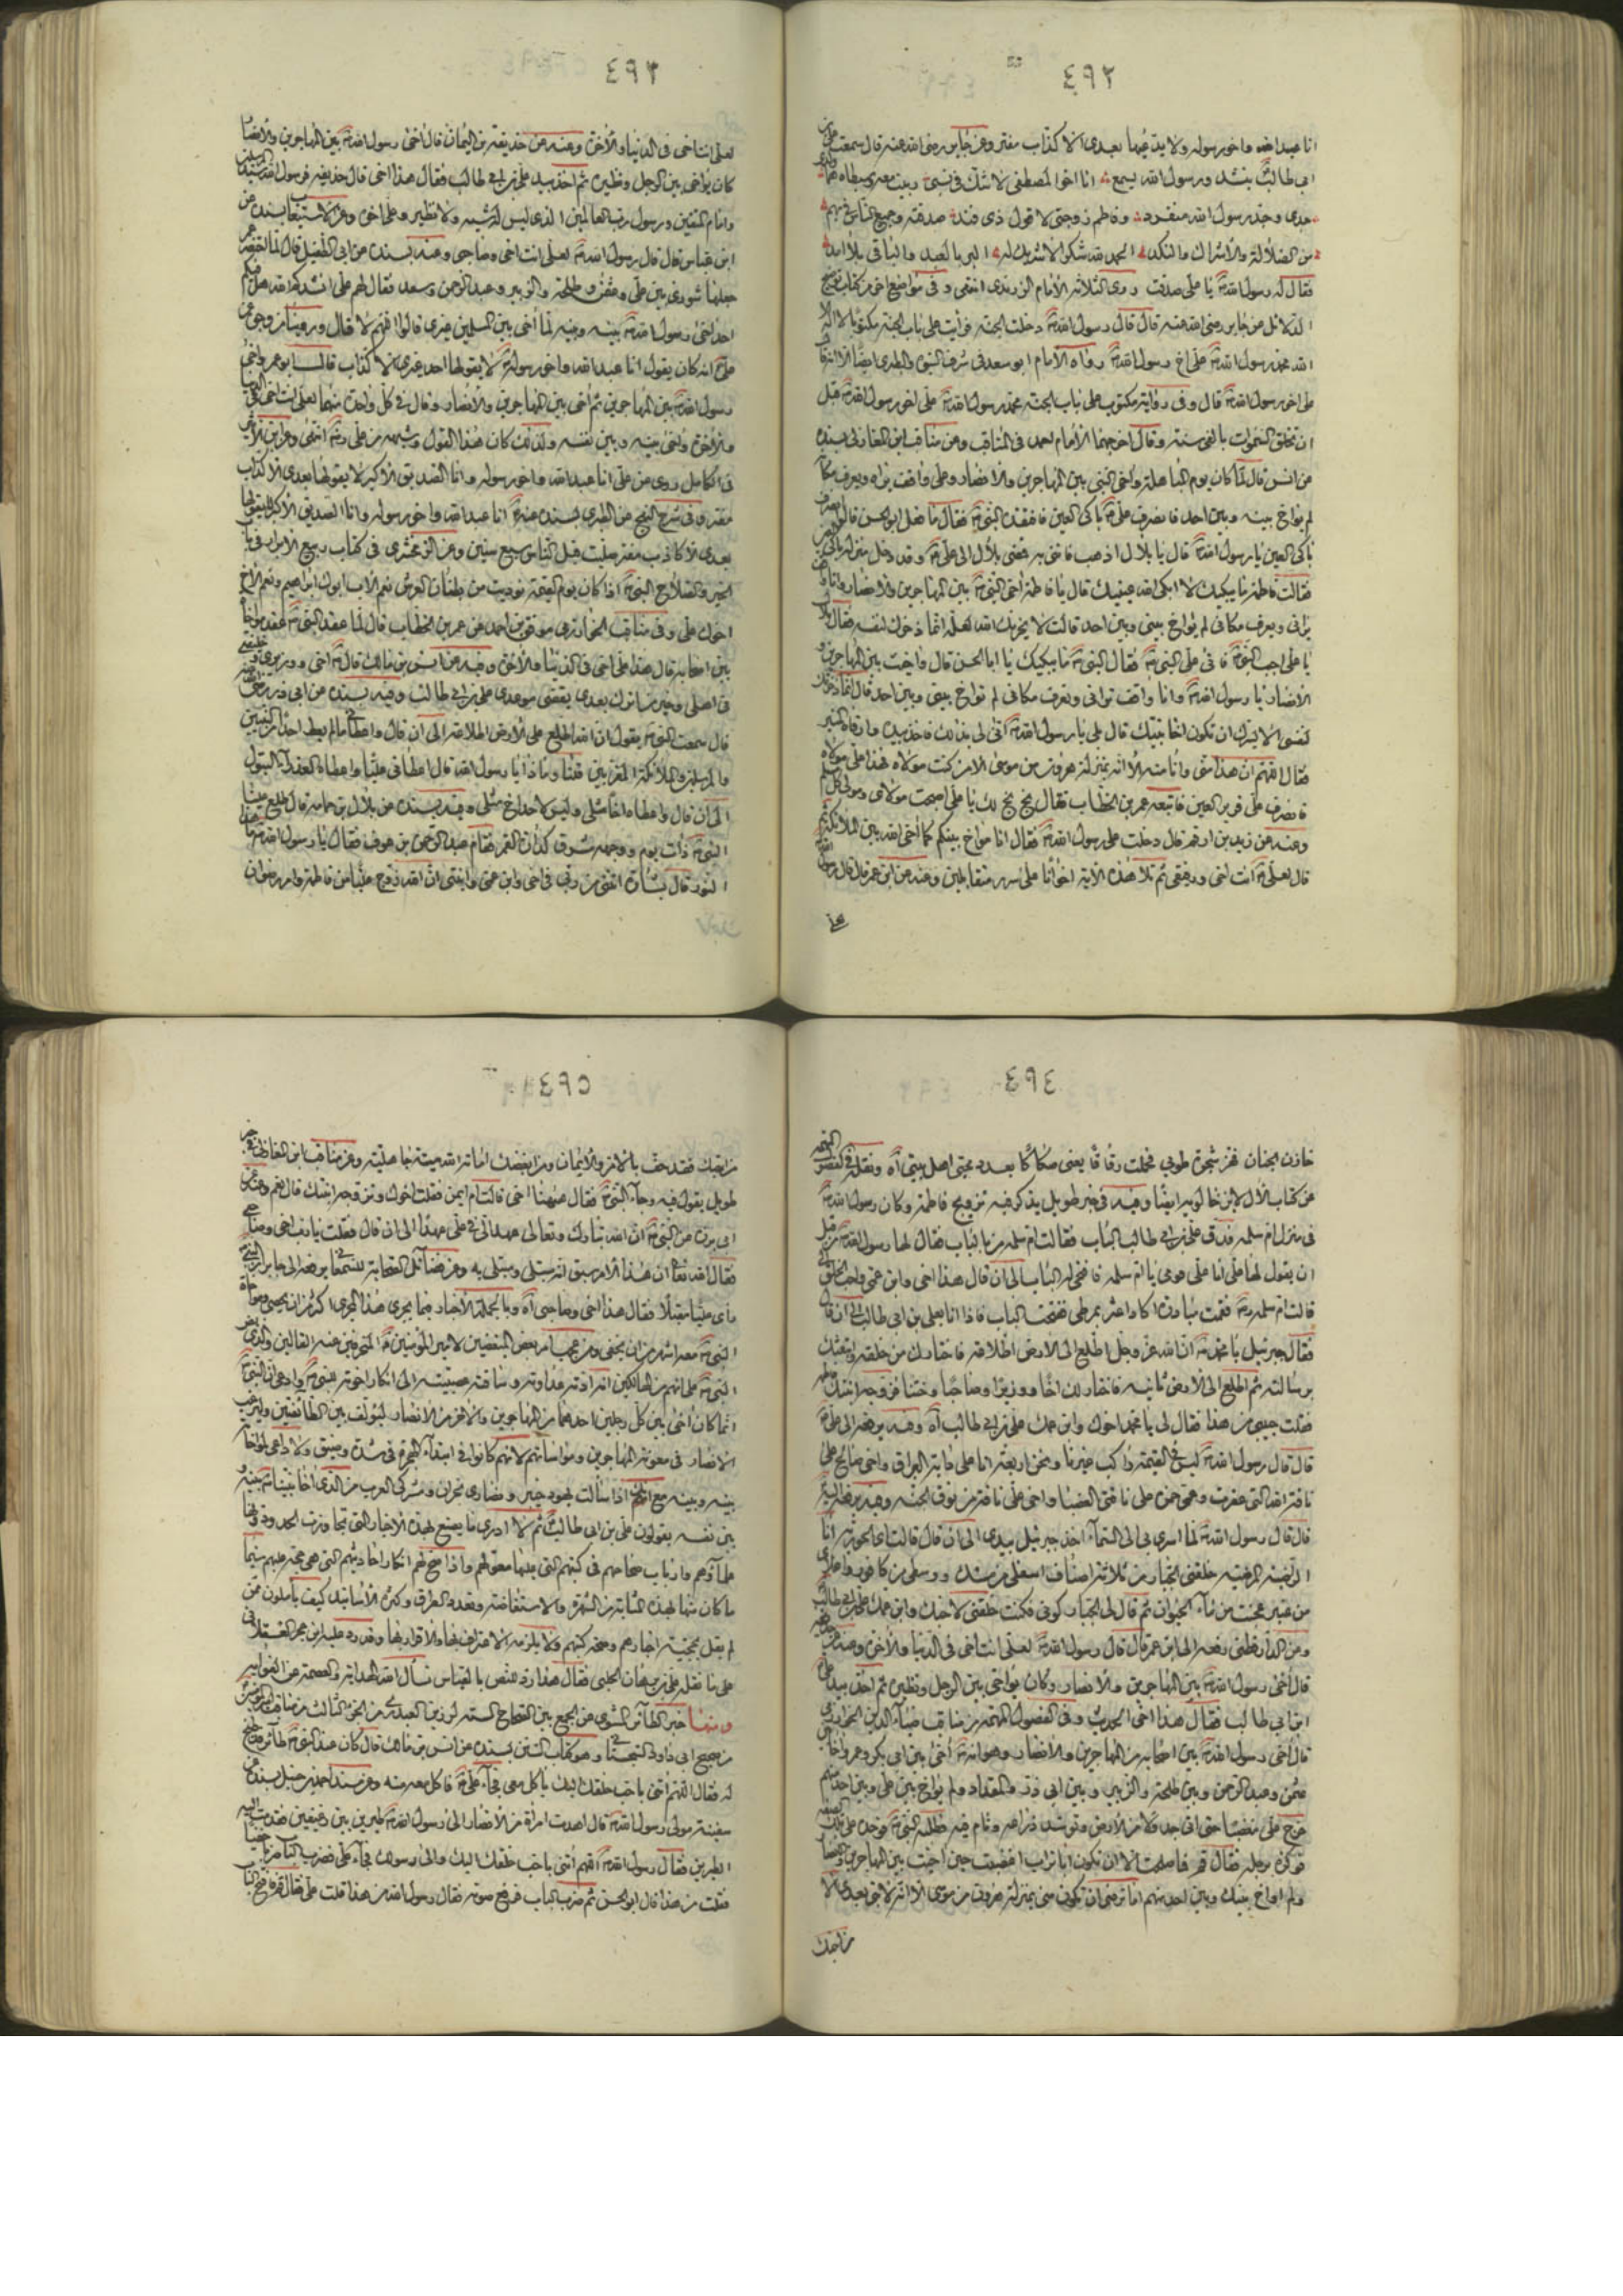 ٤٩٢
انا عبد الله واخو رسوله ولا يدعيها بعدى الا كذاب مفتر وعن جابر رضى الله عنه قال سمعت على بن
ابى طالب ينشد ورسول الله يسمع انا اخو المصطفى لا شك فى نسبى ربيت معه وسبطاه هما
جدى وجد رسول الله منفرد وفاطم زوجتى لا قول ذى فند صدقته وجميع الناس فى بهم
من الضلالة والاشراك والنكد الحمد لله شكرا لا شريك له البر بالعبد والباقى بلا امد
فقال له رسول الله يا على صدقت روى الثلاثة الامام الزرندى انتهى وفى مواضع اخر من كتاب
عن جابر رضى الله عنه قال قال رسول الله دخلت الجنة فرأيت على باب الجنة مكتوبا لا اله الا
الله محمد رسول الله على اخ رسول الله رواه الامام ابو سعد فى شرف النبوة والطبرى ايضا الا انه قال
على اخو رسول الله قال وفى رواية مكتوب على باب الجنة محمد رسول الله على اخو رسول الله قبل
ان تخلق السموات بالفى سنة وقال اخرجهما الامام احمد فى المناقب ومن مناقب ابن المغازلى بسنده
عن انس قال لما كان يوم المباهلة واخى النبى بين المهاجرين والانصار وعلى واقف يراه ويعرف مكانه
لم يواخ بينه وبين احد فانصرف على باكى العين فافتقده النبى فقال ما فعل ابو الحسن قالوا انصرف
باكى العين يا رسول الله قال يا بلال اذهب فائتنى به فمضى بلال الى على وقد دخل منزله باكى العين
فقالت فاطمة ما يبكيك لا ابكى الله عينيك قال يا فاطمة اخى النبى بين المهاجرين والانصار وانا واقف
يرانى ويعرف مكانى لم يواخ بينى وبين احد قالت لا يحزنك الله لعله انما ذخرك لنفسه فقال بلال
يا على اجب النبى فاتى على النبى فقال النبى ما يبكيك يا ابا الحسن قال واخيت بين المهاجرين و
الانصار يا رسول الله وانا واقف ترانى وتعرف مكانى لم تواخ بينى وبين احد قال انما ذخرتك
لنفسى الا يسرك ان تكون اخا نبيك قال بلى يا رسول الله انى لى بذلك فاخذ بيده وارقاه المنبر
فقال اللهم ان هذا منى وانا منه الا انه بمنزلة هرون من موسى الا من كنت مولاه فهذا على مولاه
فانصرف على قرير العين فاتبعه عمر بن الخطاب فقال بخ بخ لك يا على اصبحت مولاى ومولى كل مسلم
وعنه عن زيد بن ارقم قال دخلت على رسول الله فقال انا مواخ بينكم كما اخى الله بين الملائكة ثم
قال لعلى انت اخى ورفيقى ثم تلا هذه الاية اخوانا على سرر متقابلين وعنه عن ابن عمر قال قال رسول الله
٤٩٣
لعلى انت اخى فى الدنيا والاخرة وعنه عن حذيفة بن اليمان قال اخى رسول الله بين المهاجرين والانصار
كان يواخى بين الرجل ونظيره ثم اخذ بيد على بن ابى طالب فقال هذا اخى قال حذيفة فرسول الله سيد المسلمين
وامام المتقين ورسول رب العالمين الذى ليس له شبيه ولا نظير وعلى اخوه وعن الاستيعاب بسنده عن
ابن عباس قال قال رسول الله لعلى انت اخى وصاحبى وعنه بسنده عن ابى الطفيل قال لما احتضر عمر
جعلها شورى بين على وعثمن وطلحة والزبير وعبد الرحمن وسعد فقال لهم على انشدكم الله هل فيكم
احد اخى رسول الله بينه وبينه لما اخى بين المسلمين غيرى قالوا اللهم لا قال وروينا من وجوه عن
على انه كان يقول انا عبد الله واخو رسوله لا يقولها احد غيرى الا كذاب قال ابو عمر واخى
رسول الله بين المهاجرين ثم اخى بين المهاجرين والانصار وقال فى كل واحدة منهما لعلى انت اخى فى الدنيا
والاخرة واخى بينه وبين نفسه ولذلك كان هذا القول وشبهه من على انتهى وعن ابن الاثير
فى الكامل روى عن على انا عبد الله واخو رسوله وانا الصديق الاكبر لا يقولها بعدى الا كذاب
مفتر وفى شرح النهج عن الطبرى بسنده عنه انا عبد الله واخو رسوله وانا الصديق الاكبر لا يقولها
بعدى الا كاذب مفتر صليت قبل الناس سبع سنين وعن الزمخشرى فى كتاب ربيع الابرار فى باب
الخير والصلاح النبى اذا كان يوم القيمة نوديت من بطنان العرش نعم الاب ابوك ابراهيم ونعم الاخ
اخوك على وفى مناقب الخوارزمى موفق بن احمد عن عمر بن الخطاب قال لما عقد النبى عقد مواخاة
بين اصحابه قال هذا على اخى فى الدنيا والاخرة وفيه عن انس بن مالك قال اخى ووزيرى وخليفتى
فى اهلى وخير من اترك بعدى يقضى موعدى على بن ابى طالب وفيه بسنده عن ابى ذر رضى الله عنه
قال سمعت النبى يقول ان الله اطلع على الارض اطلاعة الى ان قال واعطانا ما لم يعط احدا من النبيين
والمرسلين والملائكة المقربين فقلنا وماذا يا رسول الله قال اعطانى عليا واعطاه العذراء البتول
الى ان قال واعطاه اخا مثلى وليس لاحد اخ مثلى وفيه بسنده عن بلال بن حمامة قال طلع علينا
النبى ذات يوم ووجهه مشرق كدارة القمر فقام عبد الرحمن بن عوف فقال يا رسول الله ما هذا
النور قال بشارة اتتنى من ربى فى اخى وابن عمى وابنتى ان الله زوج عليا من فاطمة وامر رضوان
٤٩٤
خازن الجنان فهز شجرة طوبى فحملت رقاقا يعنى صكاكا بعدد محبى اهل بيتى اه ونقل فى الفصول المهمة
عن كتاب الآل لابن خالويه ايضا وفيه فى خبر طويل يذكر فيه تزويج فاطمة وكان رسول الله
فى منزل ام سلمه فدق على بن ابى طالب الباب فقالت ام سلمه من بالباب فقال لها رسول الله من قبل
ان يقول لها على انا على قومى يا ام سلمه فافتحى له الباب الى ان قال هذا اخى وابن عمى واحب الخلق الى
قالت ام سلمه فقمت مبادرة اكاد اعثر بمرطى ففتحت الباب فاذا انا بعلى بن ابى طالب الى ان قال
فقال جبرئيل يا محمد ان الله عز وجل اطلع الى الارض اطلاعة فاختارك من خلقه وابتعثك
برسالته ثم اطلع الى الارض ثانية فاختار لك اخا ووزيرا وصاحبا وختنا فزوجه ابنتك
فقلت حبيبى من هذا فقال لى يا محمد اخوك وابن عمك على بن ابى طالب اه وفيه يرفعه الى على
قال قال رسول الله ليس فى القيمة راكب غيرنا ونحن اربعة انا على دابة البراق واخى صالح على
ناقة الله التى عقرت وعمى حمزة على ناقتى العضبا واخى على على ناقة من نوق الجنة وفيه يرفعه اليه
قال قال رسول الله لما اسرى بى الى السماء اخذ جبرئيل بيدى الى ان قال قالت اى الحورية انا
الراضية المرضية خلقنى الجبار من ثلاثة اصناف اسفلى من مسك ووسطى من كافور واعلاى
من عنبر عجنت من ماء الحيوان ثم قال لى الجبار كونى فكنت خلقنى لاخيك وابن عمك على بن ابى طالب
وعن الدارقطنى رفعه الى ابن عمر قال قال رسول الله لعلى انت اخى فى الدنيا والاخرة وعنه
قال اخى رسول الله بين المهاجرين والانصار وكان يواخى بين الرجل ونظيره ثم اخذ بيد على
ابن ابى طالب فقال هذا اخى الحديث وفى الفصول المهمة عن مناقب ضياء الدين الخوارزمى
قال اخى رسول الله بين اصحابه من المهاجرين والانصار وهو انه اخى بين ابى بكر وعمر واخى بين
عثمن وعبد الرحمن وبين طلحة والزبير وبين ابى ذر والمقداد ولم يواخ بين على وبين احد منهم
خرج على مغضبا حتى اتى جدولا من الارض وتوسد ذراعه ونام فيه فطلبه النبى فوجده على تلك الصفة
فوكزه برجله فقال قم فما صلحت الا ان تكون ابا تراب اغضبت حين اخيت بين المهاجرين والانصار
ولم اواخ بينك وبين احد منهم اما ترضى ان تكون منى بمنزلة هرون من موسى الا انه لا نبى بعدى الا
من احبك
٤٩٥
من احبك فقد حف بالامن والايمان ومن ابغضك اماته الله ميتة جاهلية وعن مناقب ابن المغازلى فى خبر
طويل يقول فيه وجاء النبى فقال ههنا اخى قالت ام ايمن فقلت اخوك وتزوجه ابنتك قال نعم وعنه عن
ابى برزة عن النبى ان الله تبارك وتعالى عهد الى فى على عهدا الى ان قال فقلت يا رب اخى وصاحبى
فقال الله تعا ان هذا لامر سبق انه مبتلى ومبتلى به وعن فضائل الصحابة للسمعانى يرفعه الى جابر ان النبى
رأى عليا مقبلا فقال هذا اخى وصاحبى اه وبالجملة الاخبار فيما يجرى هذا المجرى اكثر من ان يحصى ومواخاة
النبى معه اشهر من ان يخفى ومن عجب امر بعض المبغضين لامير المؤمنين المنحرفين عنه القالين
النبى على انهم من الهالكين انه ارادته عداوته وساقته عصبيته الى انكار اخوته للنبى وادعى ان النبى
انما كان اخى بين كل رجلين احدهما من المهاجرين والاخر من الانصار ليؤلف بين الطائفتين وليرغب
الانصار فى معونة المهاجرين ومواساتهم لانهم كانوا فى ابتداء الهجرة فى شدة وضيق ولا داعى لمواخاة
بينه وبينه مع انك اذا سألت يهود خيبر ونصارى نجران ومشركى العرب من الذى اخا نبينا بينه و
بين نفسه يقولون على بن ابى طالب ثم لا ادرى ما يصنع بهذه الاخبار التى تجاوزت الحدود وقد رواها
علماؤهم وارباب صحاحهم فى كتبهم التى عليها معولهم واذا صح لهم انكار احاديثهم التى هى حجة عليهم سيما
ما كان منها بهذه المثابة من الشهرة والاستفاضة وتعدد الطرق وكثرة الاسانيد كيف يأملون من
لم يقل بحجية اخبارهم وصحة كتبهم ولا يلزمه الاعتراف بها والاقرار بها وقد رد عليه ابن حجر العسقلانى
على ما نقله على بن برهان الحلبى فقال هذا رد للنص بالقياس نسأل الله الهداية والعصمة عن الغواية
ومنها خبر الطائر المشوى عن الجمع بين الصحاح الستة لرزين العبدرى من الجزء الثالث من مناقب
من صحيح ابى داود السجستانى وهو كتاب السنن بسنده عن انس بن مالك قال كان عند النبى طائر قد طبخ
له فقال اللهم ائتنى باحب خلقك اليك يأكل معى فجاء على فاكل معه منه وعن مسند احمد بن حنبل بسنده عن
سفينة مولى رسول الله قال اهدت امرأة من الانصار الى رسول الله طيرين بين رغيفين فقدمت اليه
الطيرين فقال رسول الله اللهم ائتنى باحب خلقك اليك والى رسولك فجاء على فضرب الباب
فقلت من هذا قال ابو الحسن ثم ضرب الباب فرفع صوته فقال رسول الله من هذا قلت على فقال قم فافتح له الباب